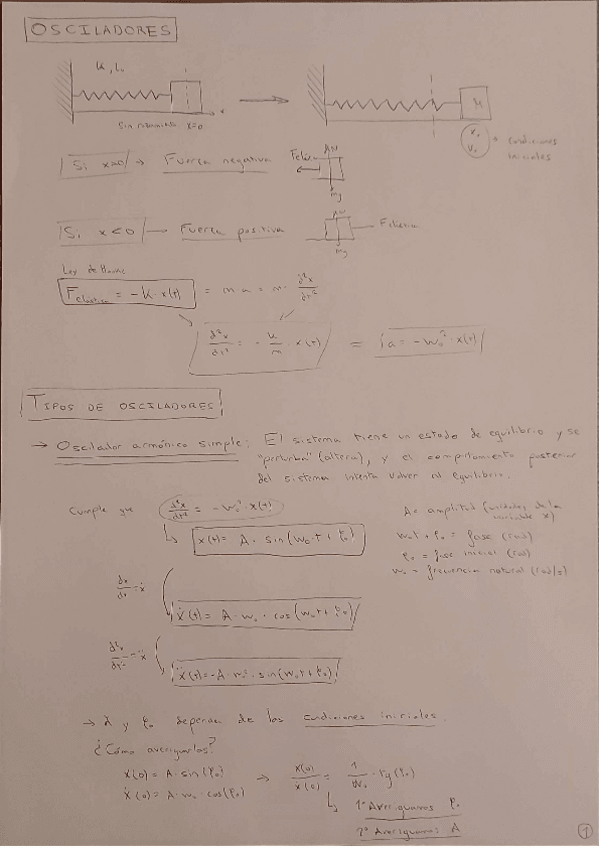 OSCILADORES
K, l₀
Sin rozamiento x=0
x
M
x₀
v₀
condiciones
iniciales
Si x>0 → Fuerza negativa
Felás
N
mg
Si x<0 → Fuerza positiva
N
Felástica
mg
Ley de Hooke
Felástica = -K·x(t) = m·a = m· d²x/dt²
d²x/dt² = - K/m · x(t) = a = -ω₀²·x(t)
TIPOS DE OSCILADORES
→ Oscilador armónico simple: El sistema tiene un estado de equilibrio y se
"perturba" (altera), y el comportamiento posterior
del sistema intenta volver al equilibrio.
Cumple que d²x/dt² = -ω₀²·x(t)
A = amplitud (unidades de la
variable x)
x(t) = A · sin(ω₀·t + φ₀)
ω₀t + φ₀ = fase (rad)
φ₀ = fase inicial (rad)
ω₀ = frecuencia natural (rad/s)
dx/dt = ẋ
ẋ(t) = A·ω₀ · cos(ω₀t+φ₀)
d²x/dt² = ẍ
ẍ(t) = -A·ω₀²·sin(ω₀t+φ₀)
→ A y φ₀ dependen de las condiciones iniciales.
¿Cómo averiguarlos?
x(0) = A·sin(φ₀)
ẋ(0) = A·ω₀·cos(φ₀)
→ x(0)/ẋ(0) = 1/ω₀ · tg(φ₀)
1º Averiguamos φ₀
2º Averiguamos A
1